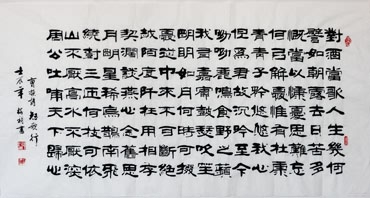 對酒當歌人生幾何
譬如朝露去日苦多
慨當以慷憂思難忘
何以解憂惟有杜康
青青子衿悠悠我心
但為君故沉吟至今
呦呦鹿鳴食野之蘋
我有嘉賓鼓瑟吹笙
明明如月何時可掇
憂從中來不可斷絕
越陌度阡枉用相存
契闊談讌心念舊恩
月明星稀烏鵲南飛
繞樹三匝何枝可依
山不厭高水不厭深
周公吐哺天下歸心
曹操詩短歌行
壬辰年書